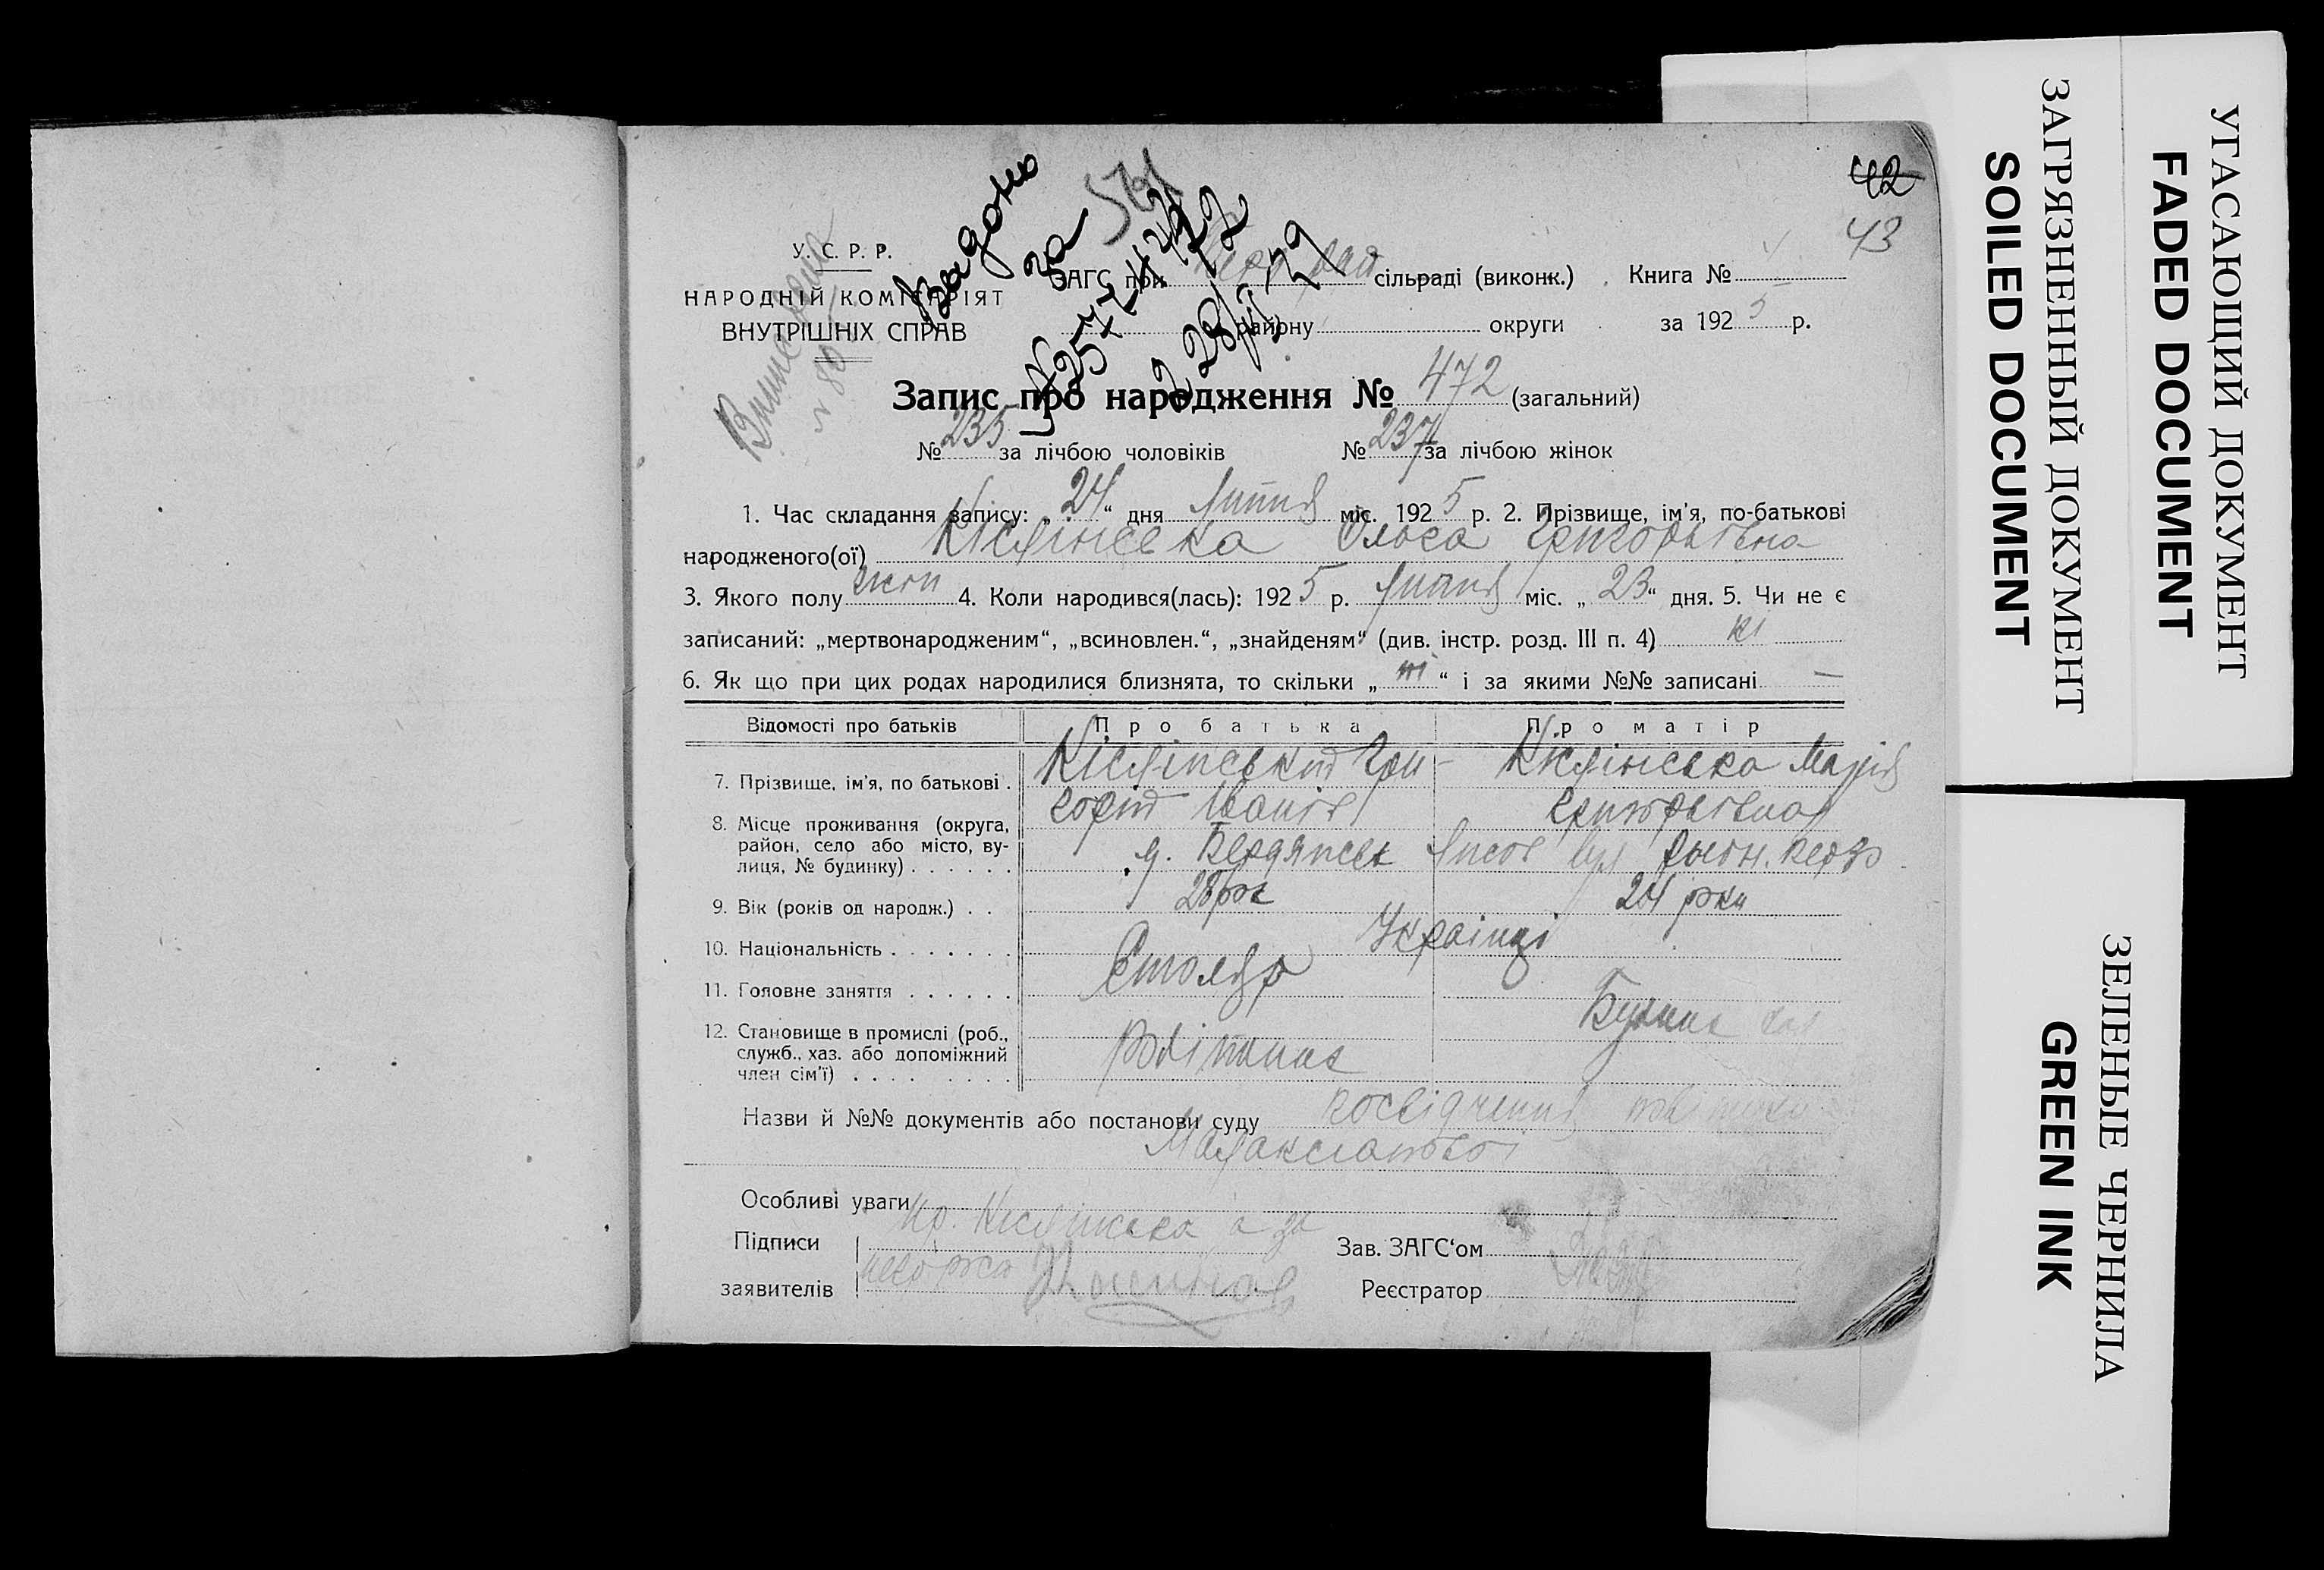 42
43
У. С. Р. Р.
НАРОДНІЙ КОМІСАРІЯТ
ВНУТРІШНІХ СПРАВ
Видано
за
ЗАГС при сільраді (виконк.) Книга №
району округи за 192 5 р.
Запис про народження № 472 (загальний)
№ 235 за лічбою чоловіків № 237 за лічбою жінок
1. Час складання запису: „ 24 “ дня липня міс. 192 5 р. 2. Прізвище, ім'я, по-батькові
народженого(ої) Кіслінська Ольга Григорьївна
3. Якого полу жін 4. Коли народився(лась): 192 5 р. липня міс. „ 23 “ дня. 5. Чи не є
записаний: „мертвонародженим“, „всиновлен.“, „знайденям“ (див. інстр. розд. III п. 4) ні
6. Як що при цих родах народилися близнята, то скільки „ ні “ і за якими №№ записані —
Відомості про батьків Про батька Про матір
7. Прізвище, ім'я, по батькові . Кіслінський Гри- Кіслінська Марія
горій Іванів Григорьївна
8. Місце проживання (округа,
район, село або місто, ву-
лиця, № будинку) . . . . . . Бердянськ
9. Вік (років од народж.) . . 28 рок 24 роки
10. Національність . . . . . . . Українці
11. Головне заняття . . . . . . Столяр
12. Становище в промислі (роб.,
служб., хаз. або допоміжний
член сім'ї) . . . . . . . . робітник
Назви й №№ документів або постанови суду посвідчення
Особливі уваги
Підписи Кіслінська а за Зав. ЗАГС‘ом
заявителів Реєстратор
УГАСАЮЩИЙ ДОКУМЕНТ
FADED DOCUMENT
ЗАГРЯЗНЕННЫЙ ДОКУМЕНТ
SOILED DOCUMENT
ЗЕЛЕНЫЕ ЧЕРНИЛА
GREEN INK